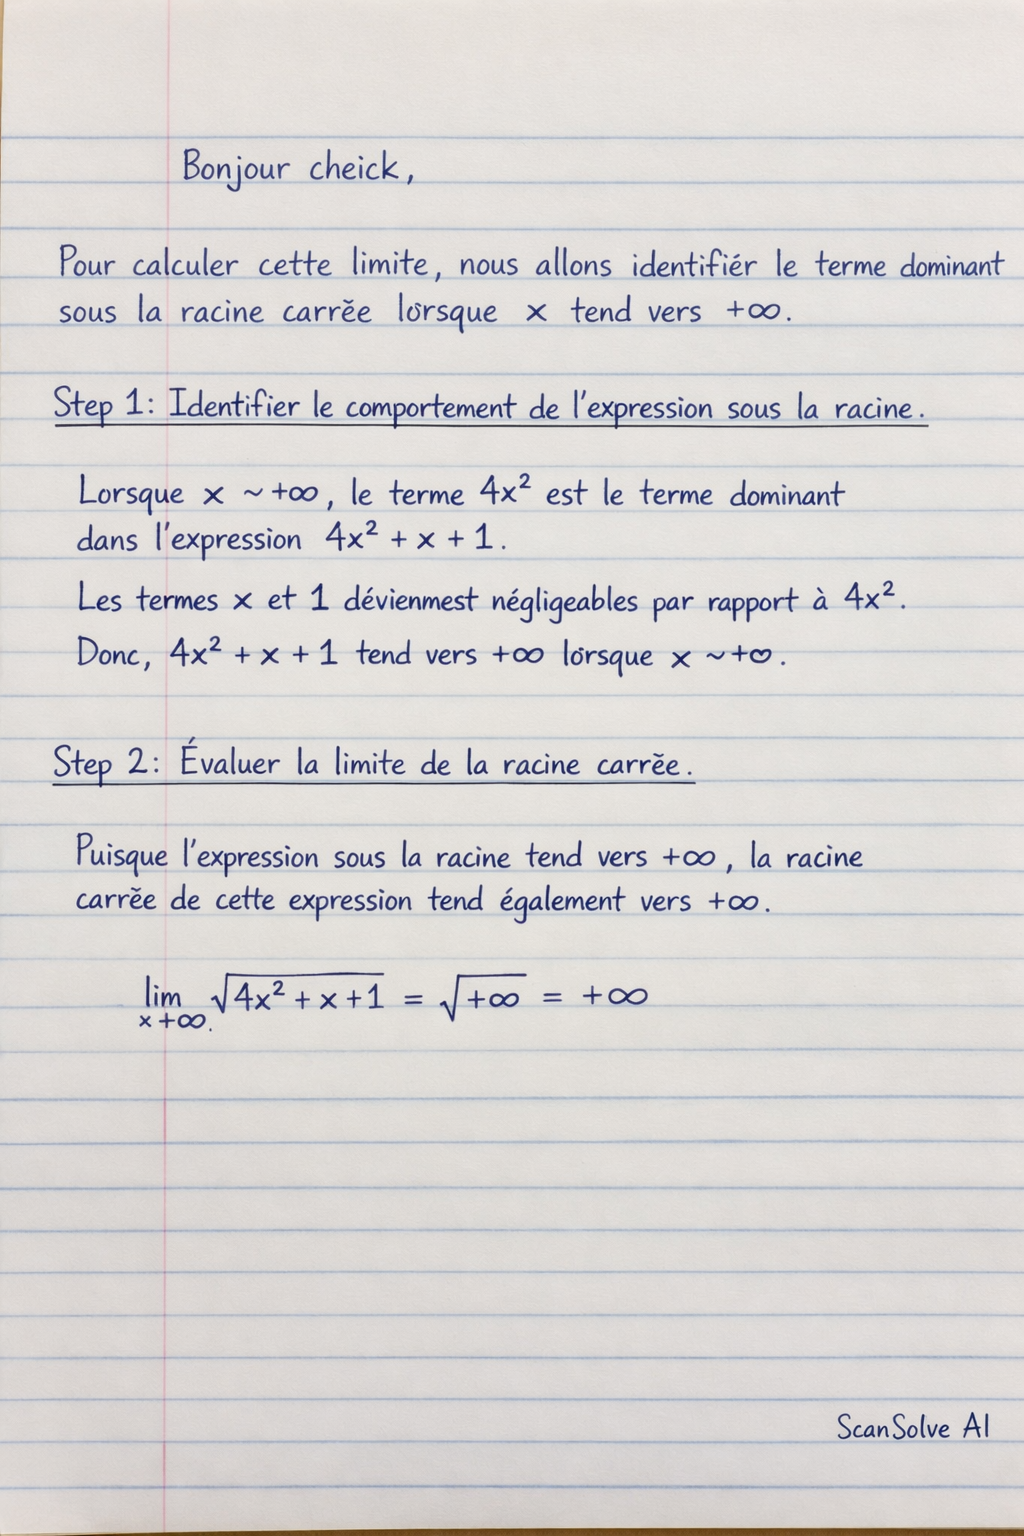 Bonjour cheick,
Pour calculer cette limite, nous allons identifiér le terme dominant
sous la racine carrěe lorsque x tend vers +∞.
Step 1: Identifier le comportement de l'expression sous la racine.
Lorsque x ~ +∞, le terme 4x² est le terme dominant
dans l'expression 4x² + x + 1.
Les termes x et 1 dévienmest négligeables par rapport à 4x².
Donc, 4x² + x + 1 tend vers +∞ lorsque x ~+∞.
Step 2: Évaluer la limite de la racine carrěe.
Puisque l'expression sous la racine tend vers +∞, la racine
carrěe de cette expression tend également vers +∞.
lim √4x² + x + 1 = √+∞ = +∞
x +∞.
ScanSolve AI